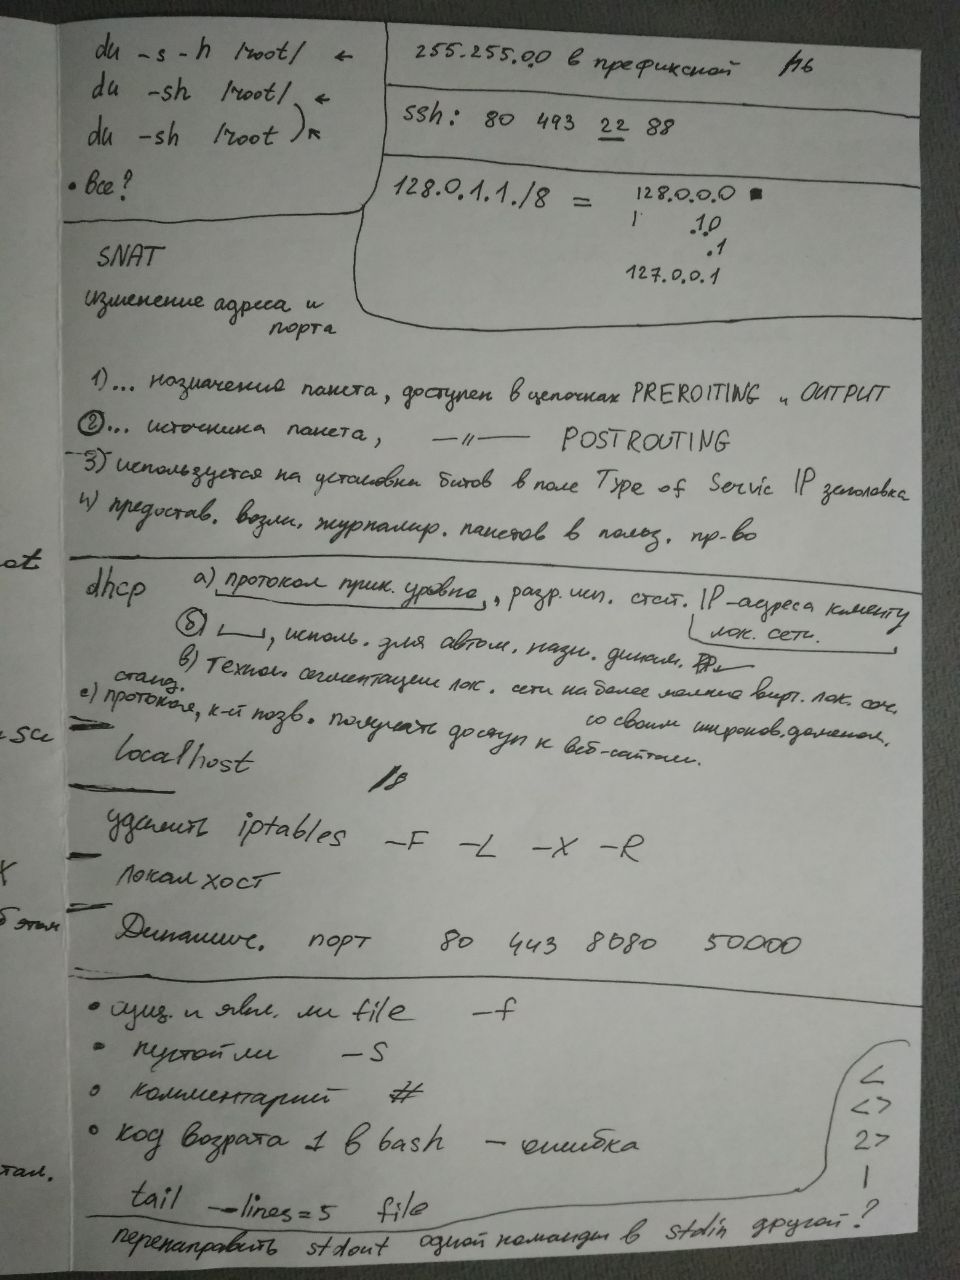 du -s -h /root/ ←
du -sh /root/ ←
du -sh /root
• Все?
255.255.0.0 в префиксной /16
ssh: 80 493 22 88
128.0.1.1./8 = 128.0.0.0
.1.0
.1
127.0.0.1
SNAT
изменение адреса и
порта
1)... назначения пакета, доступен в цепочках PREROITING и OUTPUT
2)... источника пакета, —"— POSTROUTING
3) используется на установки битов в поле Type of Servic IP заголовка
4) предостав. возм. журналир. пакетов в польз. пр-во
dhcp а) протокол прик. уровня, разр. исп. стат. IP-адреса клиенту
лок. сети.
б) , исполь. для автом. назн. динам.
в) Технол. сегментации лок. сети на более мелкие вирт. лок. сети.
со своим широков. доменом.
станд.
г) протокол, к-й позв. получать доступ к веб-сайтам.
localhost
/8
удалить iptables -F -L -X -R
локалхост
Динамич. порт 80 443 8080 50000
• сущ. и явл. ли file -f
• пустой ли -s
• комментарий #
• код возрата 1 в bash - ошибка
tail --lines=5 file
<
<>
2>
|
перенаправить stdout одной команды в stdin другой?